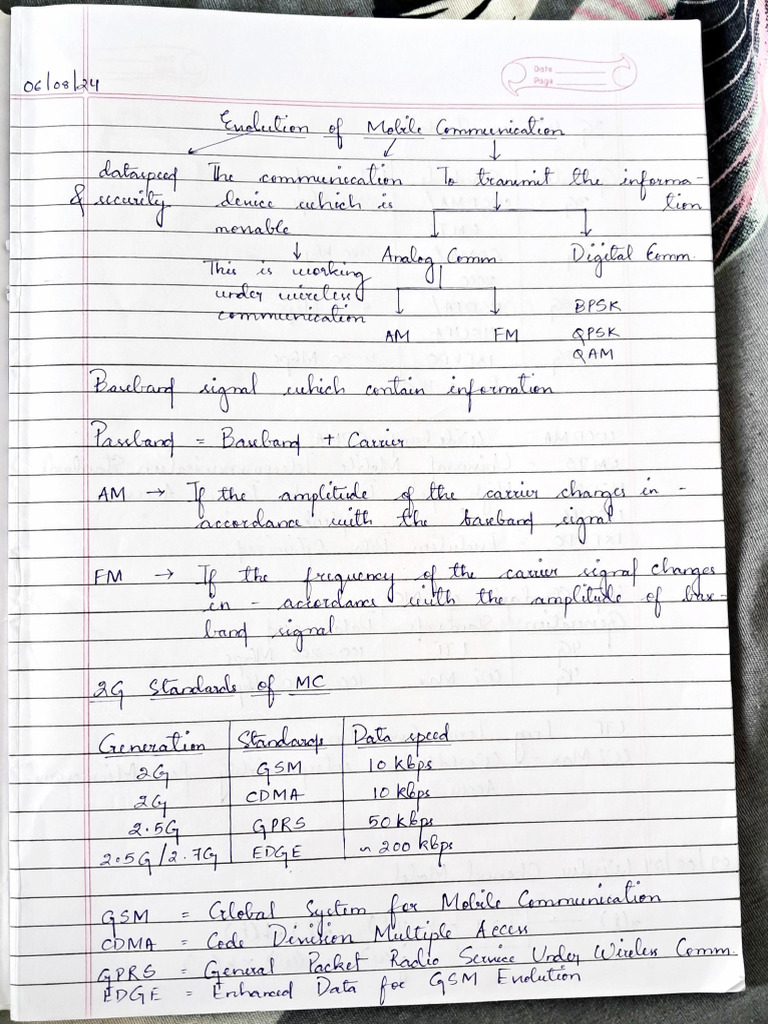 Date
Page
06/08/24
Evolution of Mobile Communication
dataspeed & security
The communication device which is movable
This is working under wireless communication
To transmit the information
Analog Comm
Digital Comm.
AM
FM
BPSK
QPSK
QAM
Baseband signal which contain information
Passband = Baseband + Carrier
AM → If the amplitude of the carrier changes in -
accordance with the baseband signal
FM → If the frequency of the carrier signal changes
in - accordance with the amplitude of base-
band signal
2G Standards of MC
Generation Standards Data speed
2G GSM 10 kbps
2G CDMA 10 kbps
2.5G GPRS 50 kbps
2.5G/2.7G EDGE ~ 200 kbps
GSM = Global System for Mobile Communication
CDMA = Code Division Multiple Access
GPRS = General Packet Radio Service Under Wireless Comm.
EDGE = Enhanced Data for GSM Evolution